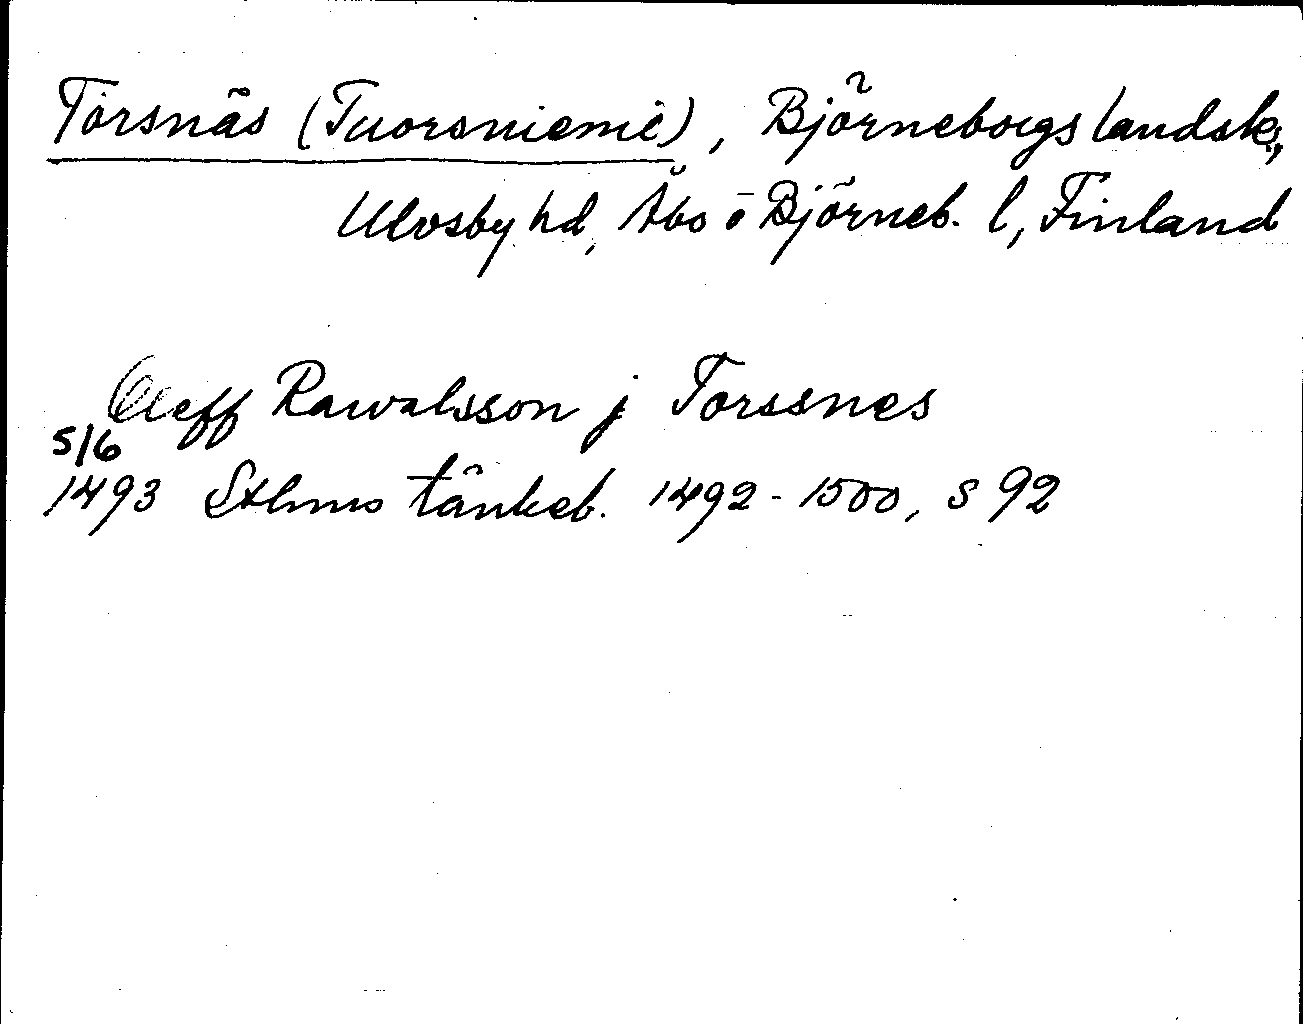 Torsnäs (Tuorsniemi), Björneborgs landsk.,
Ulvsby hd, Åbo o Björneb. l, Finland
Oleff Rawalsson j Torssnes
5/6
1493 Sthms tänkeb. 1492-1500, s 92